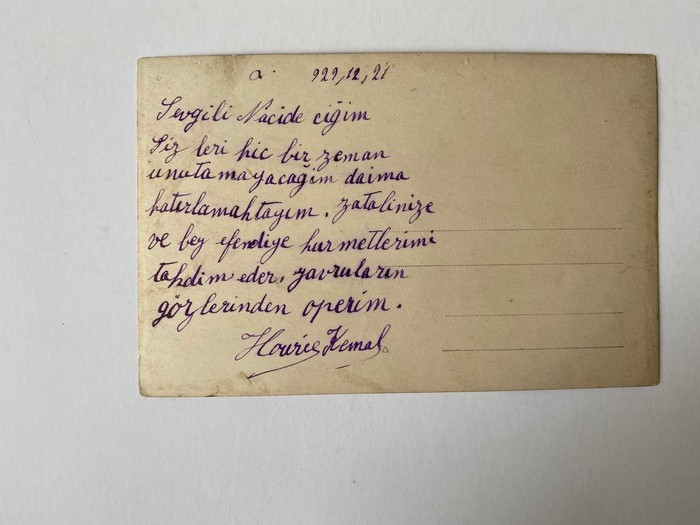 a. 929,12,21
Sevgili Nacide ciğim
Siz leri hic bir zeman
unutamayacağim daima
hatırlamahtayım. zatalinize
ve bey efendiye hurmetlerimi
takdim eder, yavruların
gözlerinden operim.
Kemal